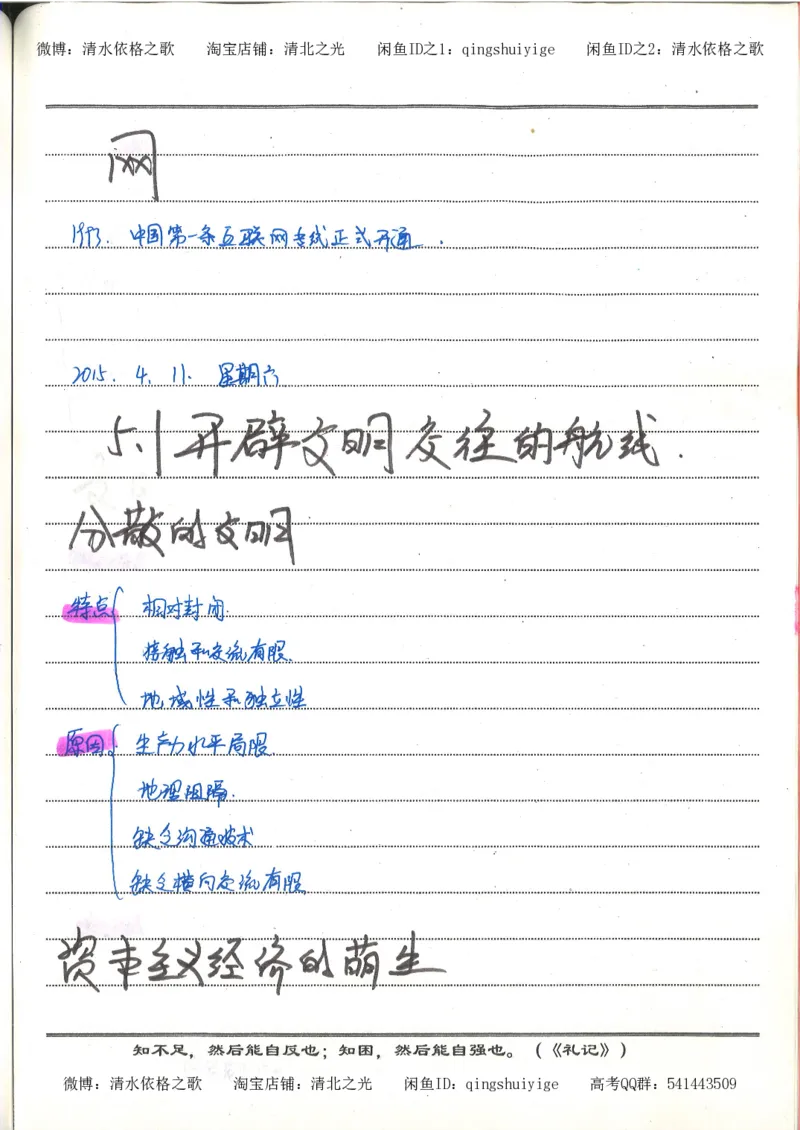 微博：清水依格之歌 淘宝店铺：清北之光 闲鱼ID之1：qingshuiyige 闲鱼ID之2：清水依格之歌
网
1993. 中国第一条互联网专线正式开通.
2015. 4. 11. 星期六
5.1 开辟文明交往的航线.
分散的文明
特点 相对封闭.
接触和交流有限.
地域性和独立性
原因。 生产力水平局限
地理阻隔.
缺乏沟通技术
缺乏横向交流有限
资本主义经济的萌生
知不足，然后能自反也；知困，然后能自强也。（《礼记》）
微博：清水依格之歌 淘宝店铺：清北之光 闲鱼ID：qingshuiyige 高考QQ群：541443509